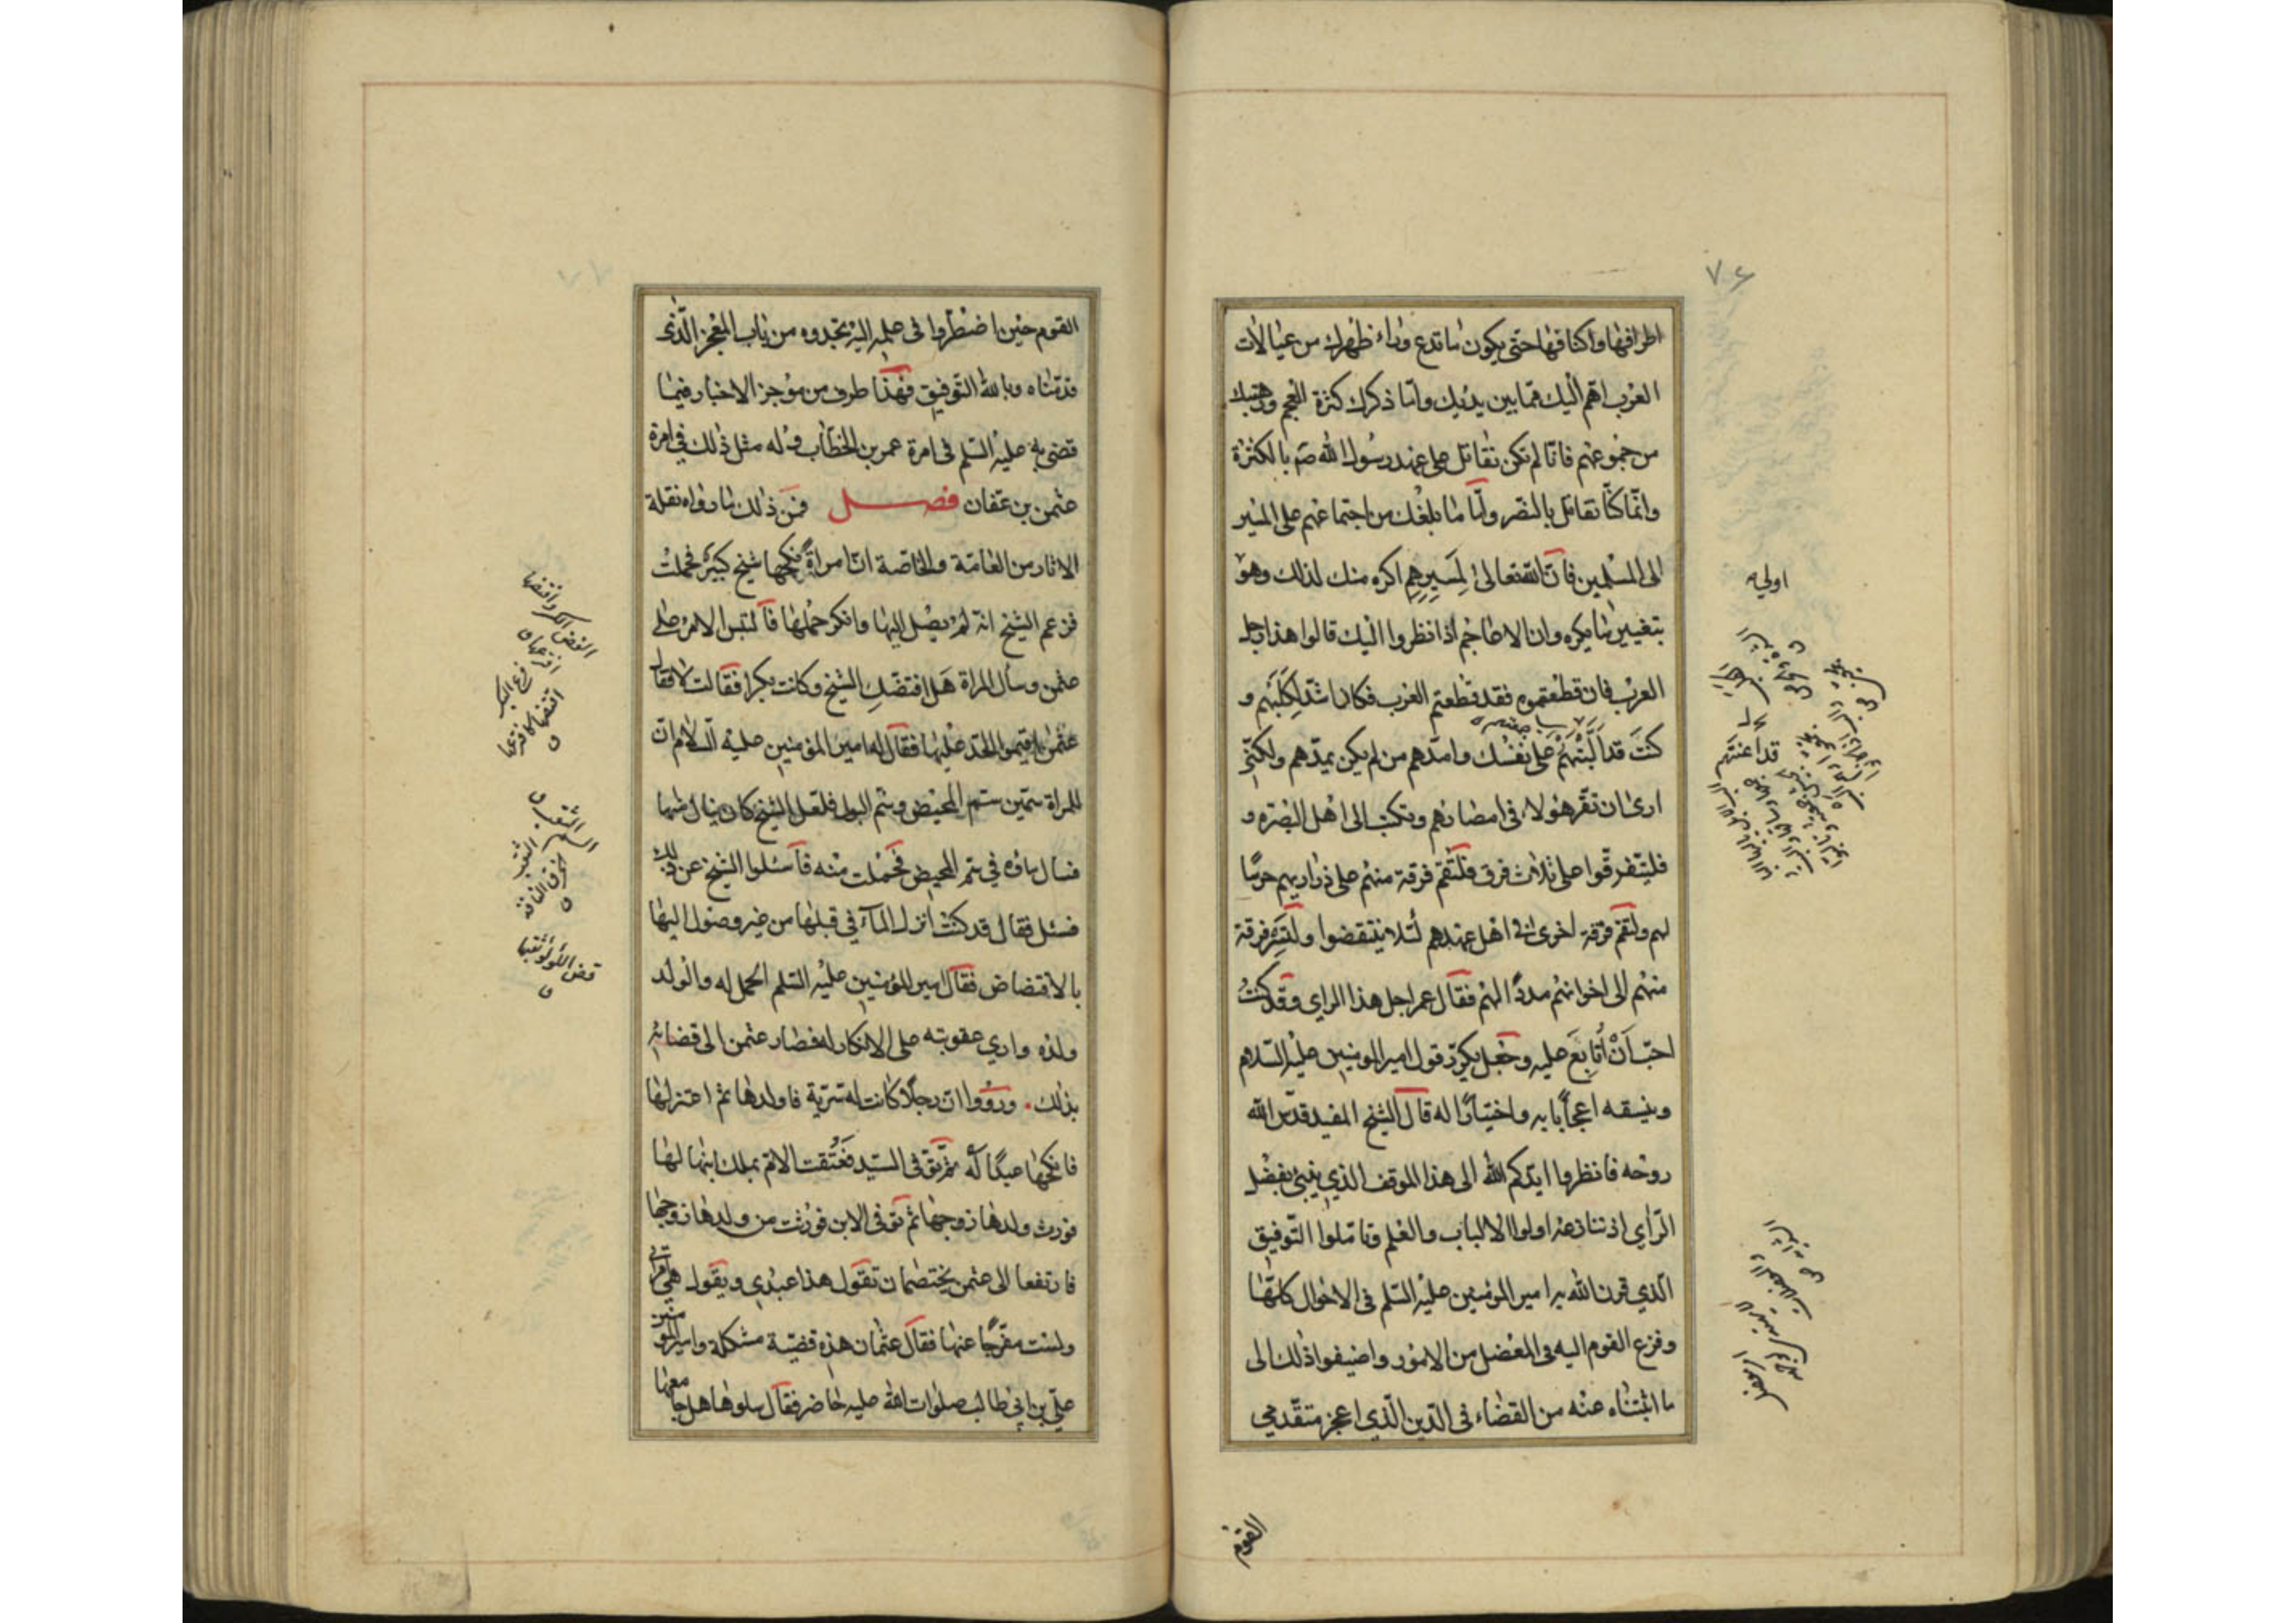 ٧٤
اطرافها واكنافها حتى يكون ما تدع وراء ظهرك من عيالات
العرب اهم اليك مما بين يديك واما ذكرك كثرة العجم ورهبتك
من جموعهم فانا لم نكن نقاتل على عهد رسول الله صم بالكثرة
وانما كنا نقاتل بالنصر واما ما بلغك من اجتماعهم على المسير
الى المسلمين فان الله تعالى لمسيرهم اكره منك لذلك وهو
اولى بتغيير ما يكره وان الاعاجم اذا نظروا اليك قالوا هذا رجل
العرب فان قطعتموه فقد قطعتم العرب فكان اشد لكلبهم و
كنت قد البتهم على نفسك وامدهم من لم يكن يمدهم ولكني
ارى ان تقر هؤلاء في امصارهم وتكتب الى اهل البصرة و
فليتفرقوا على ثلاث فرق فلتقم فرقة منهم على ذراريهم حرسا
لهم ولتقم فرقة اخرى في اهل عهدهم لئلا ينتقضوا ولتسر فرقة
منهم الى اخوانهم مددا لهم فقال عمر اجل هذا الراي وقد كنت
احب ان اتابع عليه وجعل يكرر قول امير المومنين عليه السلام
وينسقه اعجابا به واختيارا له قال الشيخ المفيد قدس الله
روحه فانظروا ايدكم الله الى هذا الموقف الذي ينبئ بفضل
الراي اذ تنازعه اولوا الالباب والعلم وتاملوا التوفيق
الذي قرن الله به امير المؤمنين عليه السلم في الاحوال كلها
وفزع القوم اليه في المعضل من الامور واضيفوا ذلك الى
ما اثبتناه عنه من القضاء في الدين الذي اعجز متقدمي
القوم
٧٧
القوم حين اضطروا في علمه اليه تجدوه من باب المعجز الذي
قدمناه وبالله التوفيق فهذا طرف من موجز الاخبار فيما
قضى به عليه السلم في امرة عمر بن الخطاب وله مثل ذلك في امرة
عثمن بن عفان فصل فمن ذلك ما رواه نقلة
الاثار من العامة والخاصة ان امراة نكحها شيخ كبير فحملت
فزعم الشيخ انه لم يصل اليها وانكر حملها فالتبس الامر على
عثمن وسال المراة هل افتضك الشيخ وكانت بكرا فقالت لا فقال
عثمن اقيموا الحد عليها فقال له امير المؤمنين عليه السلام ان
للمراة سمين سم المحيض وسم البول فلعل الشيخ كان ينال منها
فسال ماؤه في سم المحيض فحملت منه فاسئلوا الشيخ عن ذلك
فسئل فقال قد كنت انزل الماء في قبلها من غير وصول اليها
بالاقتضاض فقال امير المؤمنين عليه السلم الحمل له والولد
ولده واري عقوبته على الانكار له فصار عثمن الى قضائه
بذلك . ورووا ان رجلا كانت له سرية فاولدها ثم اعتزلها
فانكحها عبدا له ثم توفى السيد فعتقت الامة بملك ابنها لها
فورث ولدها زوجها ثم توفى الابن فورثت من ولدها زوجها
فارتفعا الى عثمن يختصمان تقول هذا عبدي ويقول هي امراتي
ولست مفرجا عنها فقال عثمان هذه قضية مشكلة وامير المؤمنين
علي بن ابي طالب صلوات الله عليه حاضر فقال سلوها هل جامعها